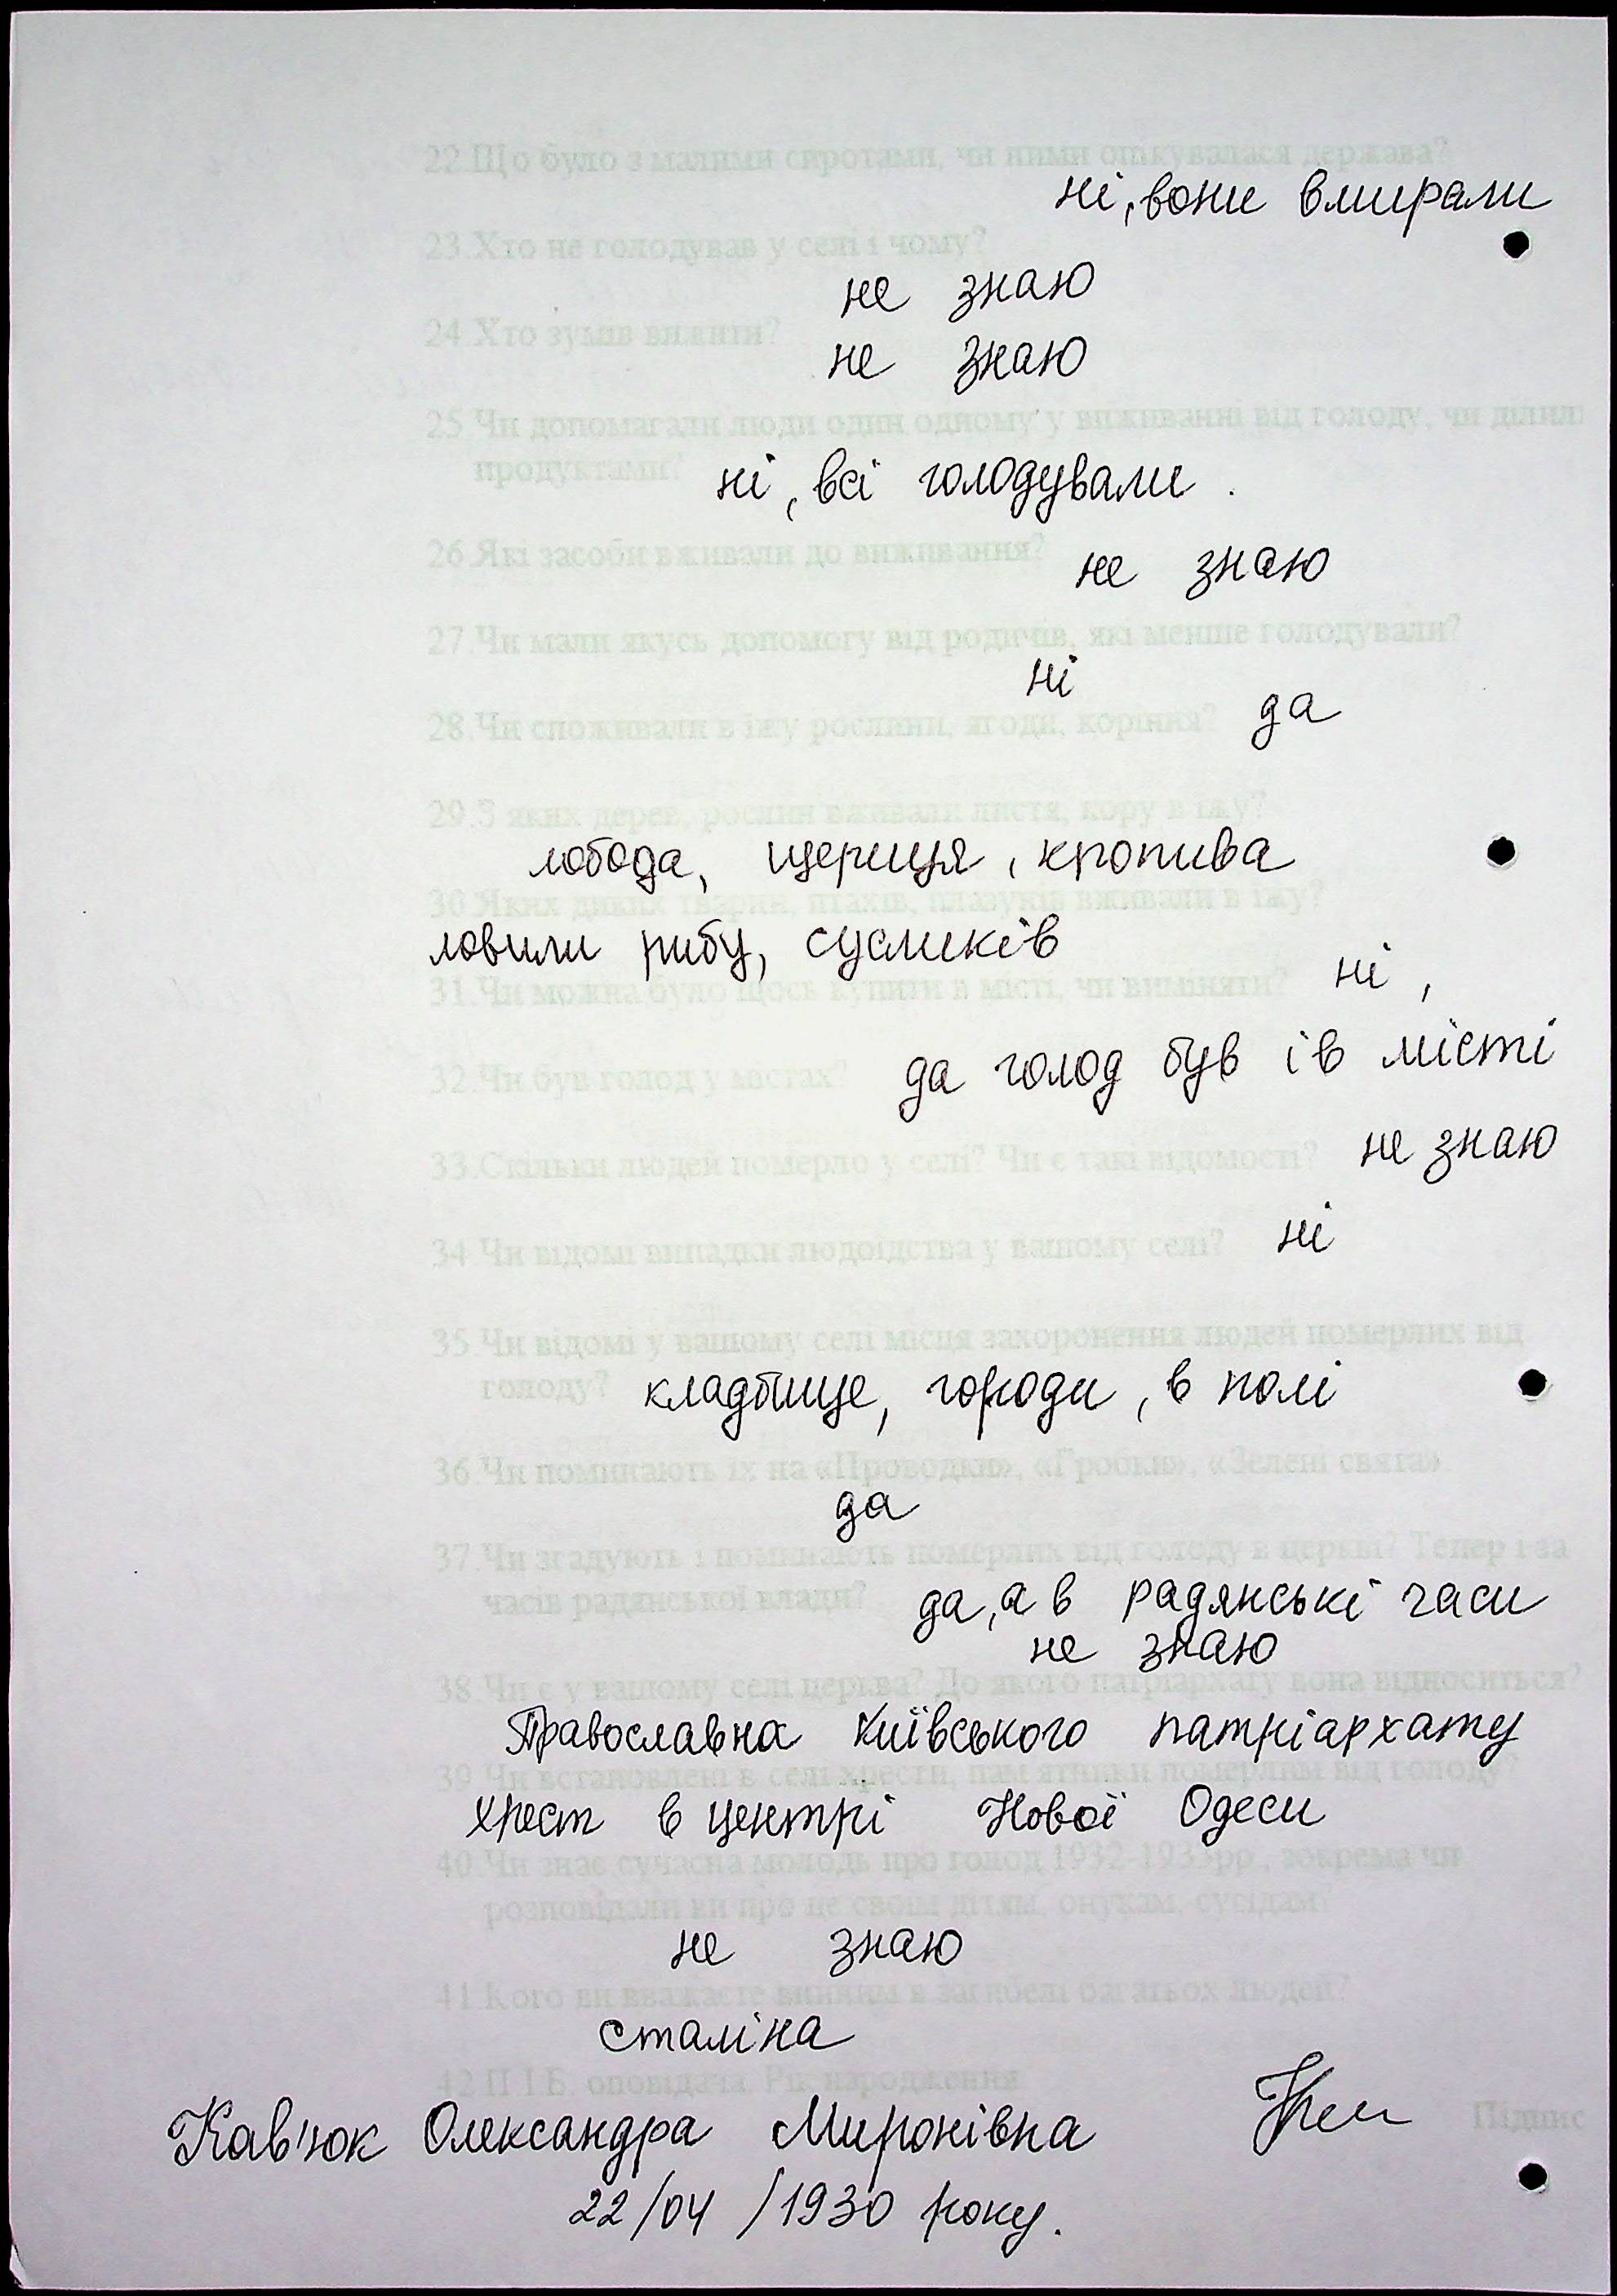 22.Що було з малими сиротами, чи ними опікувалася держава?
ні, вони вмирали
23.Хто не голодував у селі і чому?
не знаю
24.Хто зумів вижити?
не знаю
25.Чи допомагали люди один одному у виживанні від голоду, чи ділили
продуктами?
ні, всі голодували.
26.Які засоби вживали до виживання?
не знаю
27.Чи мали якусь допомогу від родичів, які менше голодували?
ні
28.Чи споживали в їжу рослини, ягоди, коріння?
да
29.З яких дерев, рослин вживали листя, кору в їжу?
лобода, щериця, кропива
30.Яких диких тварин, птахів, плазунів вживали в їжу?
ловили рибу, сусликів
31.Чи можна було щось купити в місті, чи виміняти?
ні,
32.Чи був голод у містах?
да голод був і в місті
33.Скільки людей померло у селі? Чи є такі відомості?
не знаю
34.Чи відомі випадки людоїдства у вашому селі?
ні
35.Чи відомі у вашому селі місця захоронення людей померлих від
голоду?
кладбище, городи, в полі
36.Чи поминають їх на «Проводки», «Гробки», «Зелені свята»
да
37.Чи згадують і поминають померлих від голоду в церкві? Тепер і за
часів радянської влади?
да, а в радянські часи
не знаю
38.Чи є у вашому селі церква? До якого патріархату вона відноситься?
Православна Київського патріархату
39.Чи встановлені в селі хрести, пам'ятники померлим від голоду?
хрест в центрі Нової Одеси
40.Чи знає сучасна молодь про голод 1932-1933рр., зокрема чи
розповідали ви про це своїм дітям, онукам, сусідам?
не знаю
41.Кого ви вважаєте винним в загибелі багатьох людей?
сталіна
42.П.І.Б. оповідача. Рік народження
Кав'юк Олександра Миронівна
Підпис
22/04/1930 року.